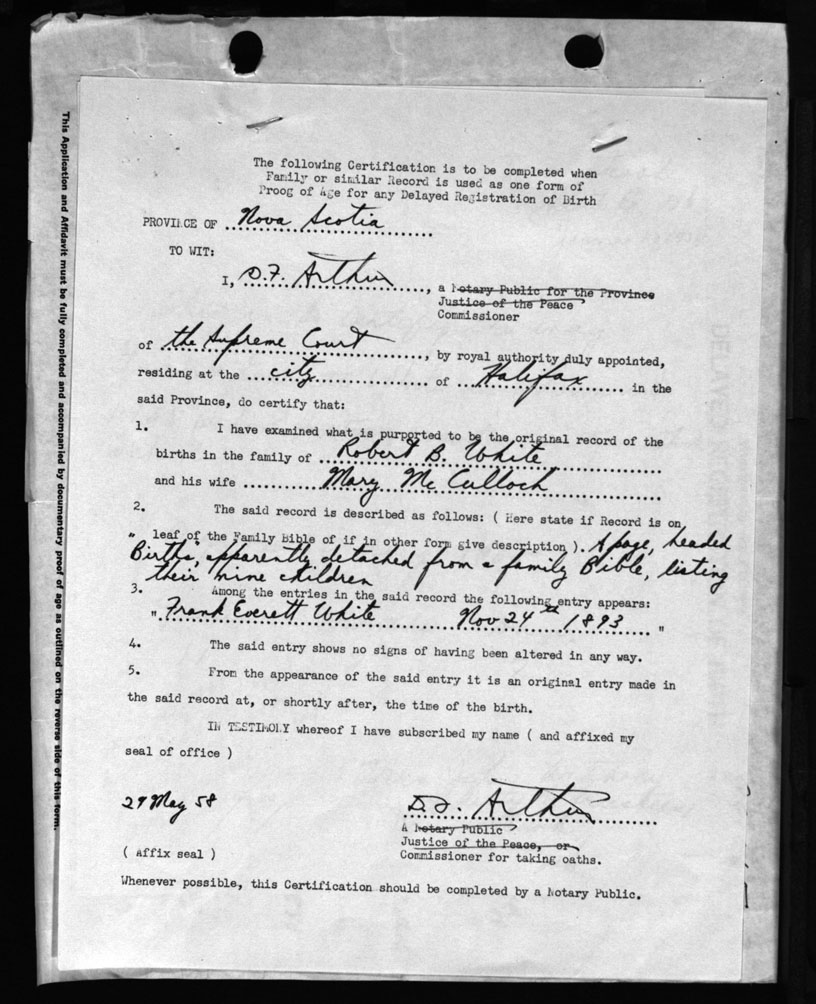 This Application and Affidavit must be fully completed and accompanied by documentary proof of age as outlined on the reverse side of this form.
The following Certification is to be completed when
Family or similar Record is used as one form of
Proog of Age for any Delayed Registration of Birth
PROVINCE OF Nova Scotia
TO WIT:
I, D.F. Arthur, a Notary Public for the Province
Justice of the Peace
Commissioner
of the Supreme Court, by royal authority duly appointed,
residing at the city of Halifax in the
said Province, do certify that:
1. I have examined what is purported to be the original record of the
births in the family of Robert B. White
and his wife Mary McCulloch
2. The said record is described as follows: ( Here state if Record is on
" leaf of the Family Bible of if in other form give description ). A page, headed
Births, apparently detached from a family Bible, listing
their nine children
3. Among the entries in the said record the following entry appears:
" Frank Everett White Nov 24th 1893 "
4. The said entry shows no signs of having been altered in any way.
5. From the appearance of the said entry it is an original entry made in
the said record at, or shortly after, the time of the birth.
IN TESTIMOLY whereof I have subscribed my name ( and affixed my
seal of office )
29 May 58 D.F. Arthur
A Notary Public
Justice of the Peace, or
( Affix seal ) Commissioner for taking oaths.
Whenever possible, this Certification should be completed by a Notary Public.